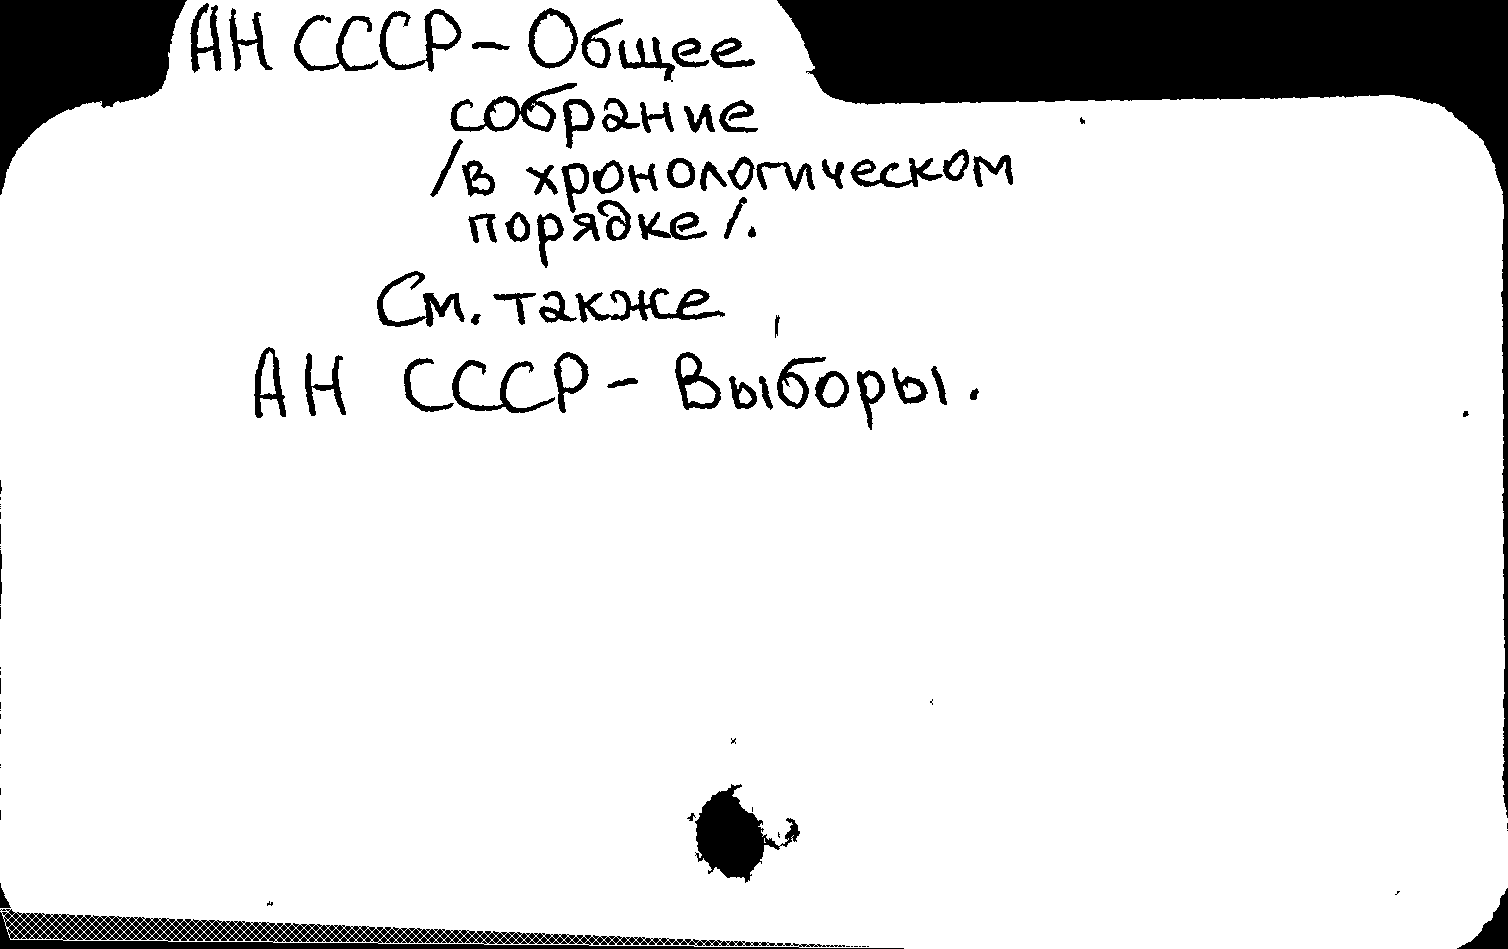 АН СССР - Общее
собрание
/в хронологическом
порядке/.
См. также
АН СССР - Выборы.